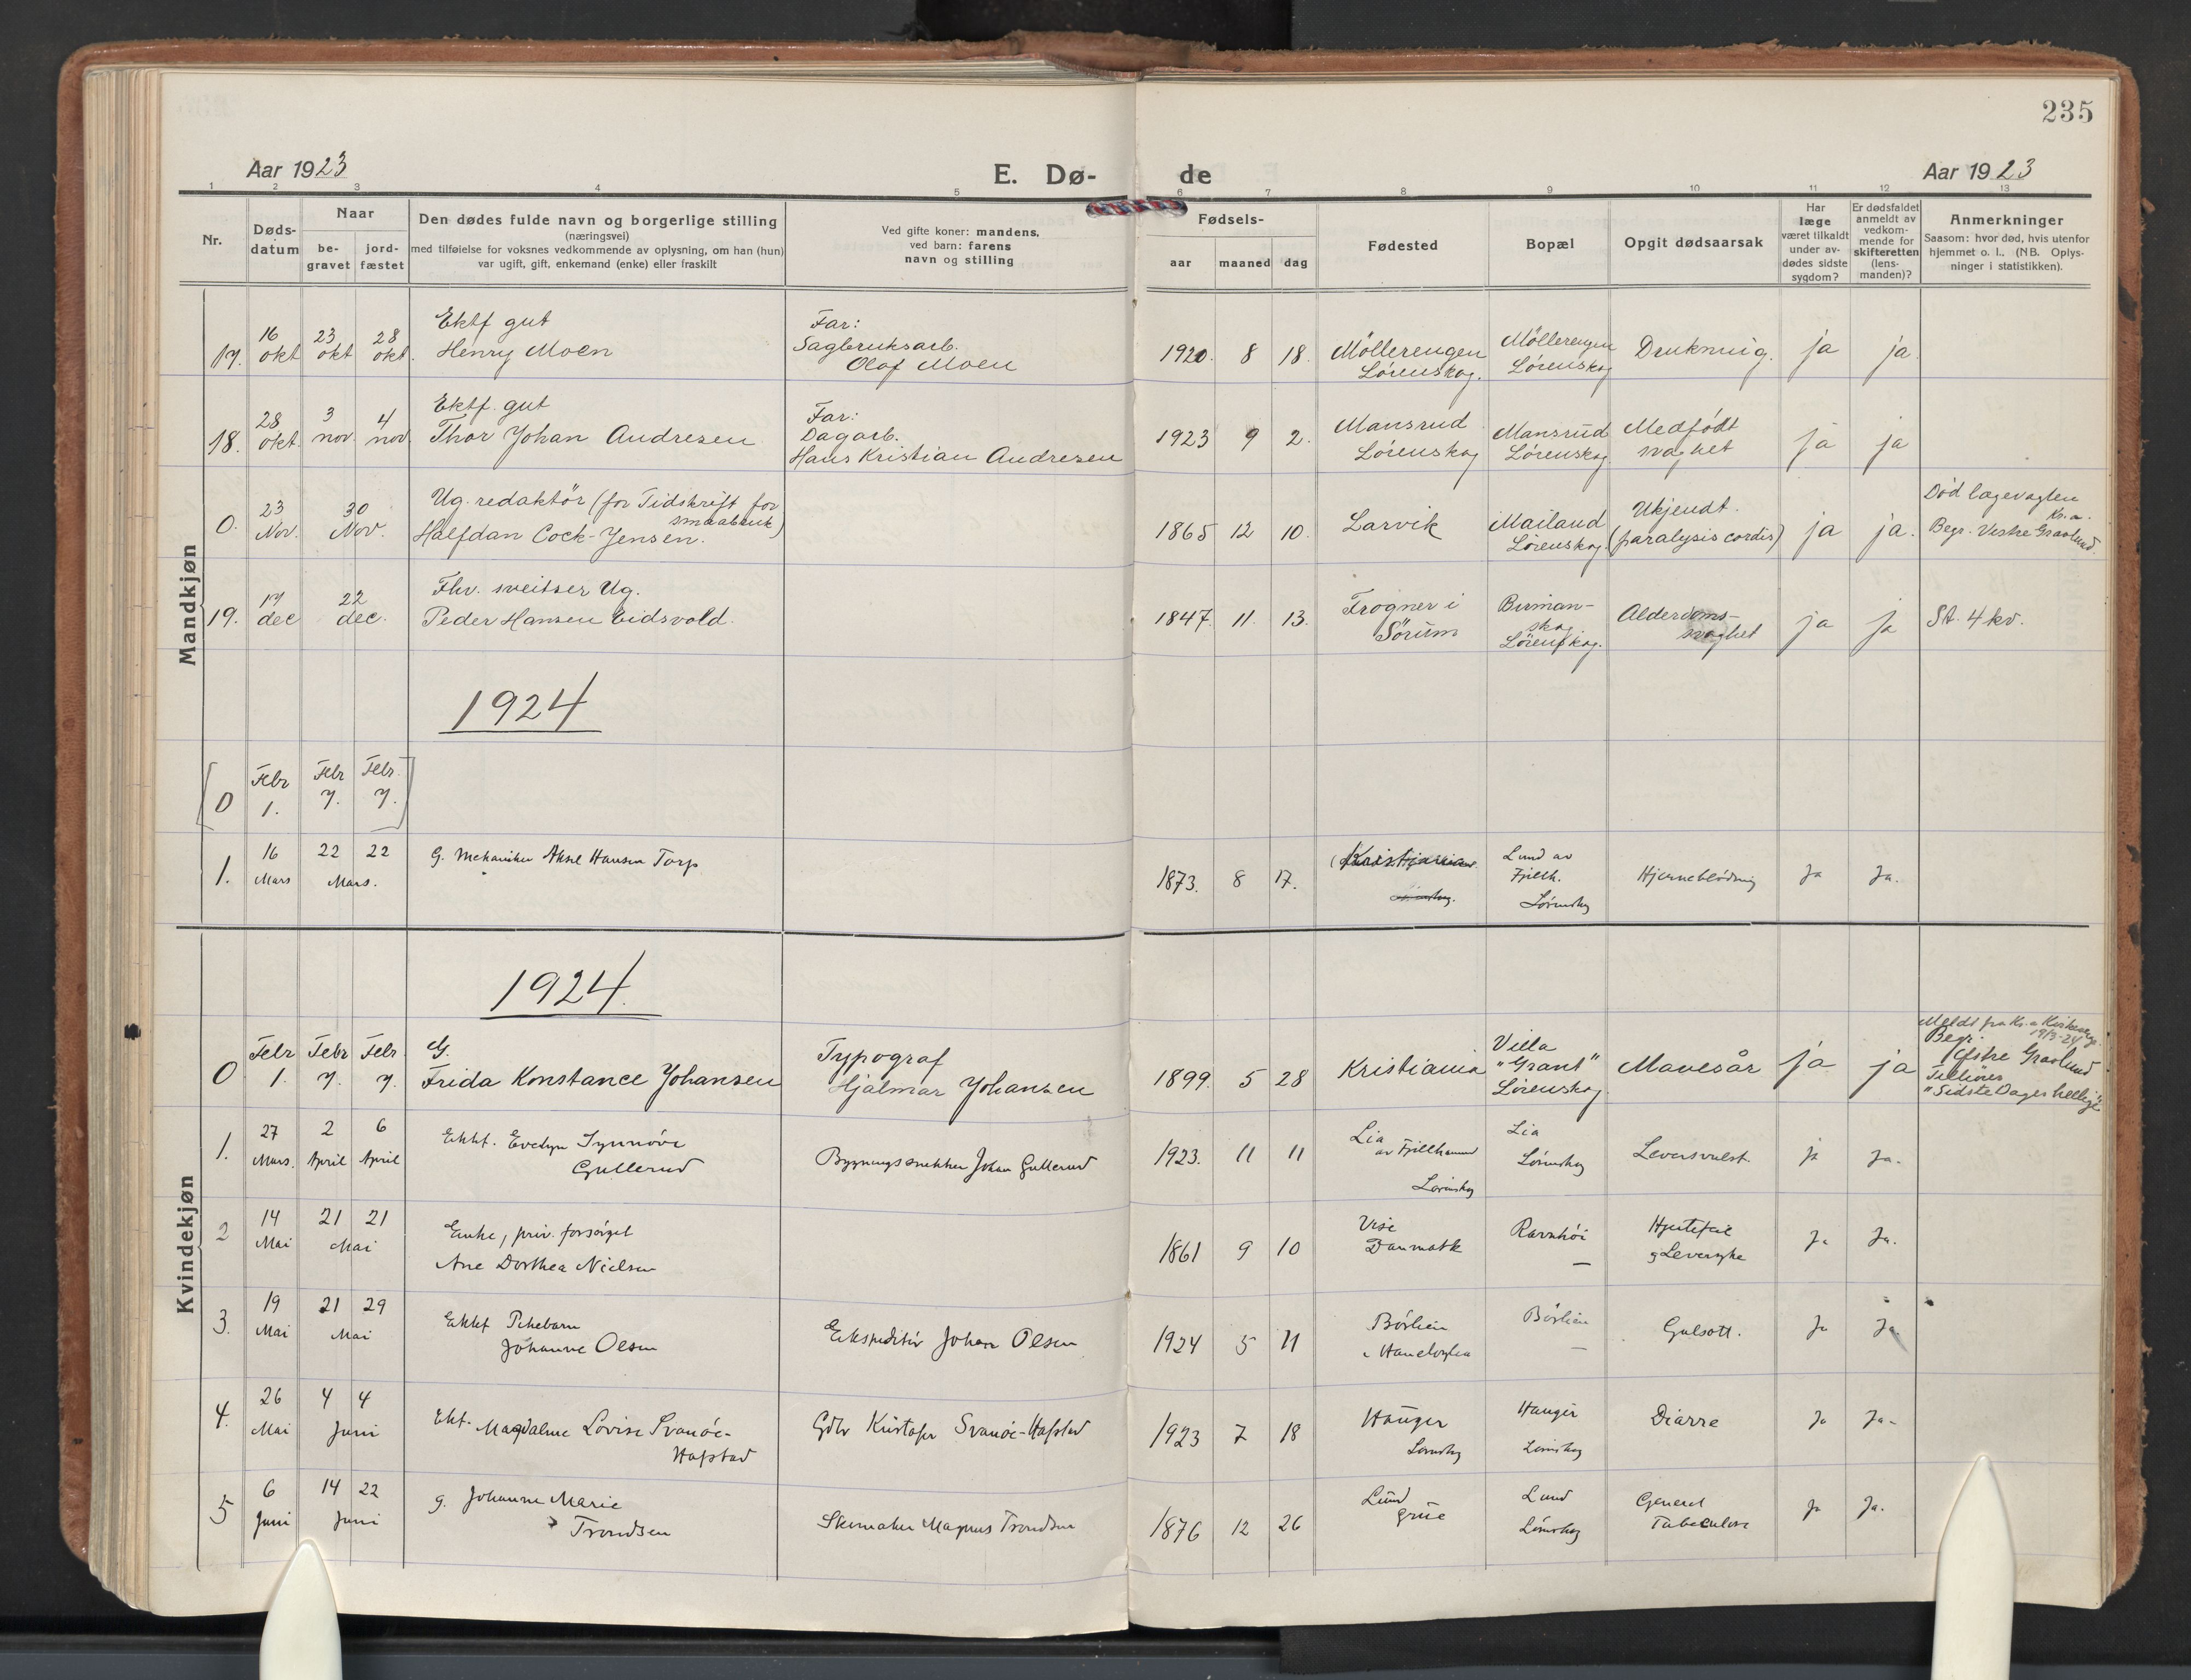 235
Aar 1923
E. Dø-
de
Aar 1923
1 2 3 4 5 6 7 8 9 10 11 12 13
Nr.
Døds-
datum
Naar
be-
gravet
jord-
fæstet
Den dødes fulde navn og borgerlige stilling
(næringsvei)
med tilføielse for voksnes vedkommende av oplysning, om han (hun)
var ugift, gift, enkemand (enke) eller fraskilt
Ved gifte koner: mandens,
ved barn: farens
navn og stilling
Fødsels-
aar maaned dag
Fødested
Bopæl
Opgit dødsaarsak
Har
læge
været tilkaldt
under av-
dødes sidste
sygdom?
Er dødsfaldet
anmeldt av
vedkom-
mende for
skifteretten
(lens-
manden)?
Anmerkninger
Saasom: hvor død, hvis utenfor
hjemmet o. l., (NB. Oplys-
ninger i statistikken).
Mandkjøn
17. 16 okt 23 okt 28 okt.
Ektf gut
Henry Moen
Far:
Sagbruksarb.
Olaf Moen
1920. 8 18.
Möllerengen
Lörenskog.
Möllerengen
Lörenskog
Drukning.
ja ja.
18. 28 okt. 3 nov. 4 nov.
Ektf. gut
Thor Johan Andresen
Far:
Dagarb.
Hans Kristian Andresen
1923 9 2.
Mansrud
Lörenskog
Mansrud
Lörenskog.
Medfödt
svaghet
ja ja
0. 23 Nov. 30 Nov.
Ug. redaktör (for Tidskrift for
smaabruk)
Halfdan Cock-Jensen.
1865 12 10.
Larvik
Mailand
Lörenskog.
Ukjendt.
(paralysis cordis)
ja ja.
Död lægevagten
Kr.a.
Begr. Vestre Gravlund.
19. 17 dec 22 dec.
Fhv. sveitser Ug.
Peder Hansen Eidsvold.
1847. 11. 13.
Frogner i
Sörum
Birman-
skog
Lörenskog.
Alderdoms-
svaghet
ja ja
St. 4 kv.
1924
[0 Febr 1. Febr 7. Febr. 7.]
1. 16 Mars 22 22 Mars.
G. Mekaniker Aksel Hansen Torp
1873. 8 17.
Kristiania
Lund av
Fjellh.
Lörenskog
Hjerneblödning
Ja Ja.
Kvindekjøn
1924.
0 Febr 1. Febr 7. Febr. 7.
G.
Frida Konstance Johansen
Typograf
Hjalmar Johansen
1899. 5 28
Kristiania
Villa
"Grant"
Lörenskog
Mavesår
ja ja
Meldt fra Kr.a Kirkeverge
19/3-24
Begr.
Østre Gravlund
Tilhörer
"Sidste Dages hellige"
1. 27 Mars. 2 April 6 April
Ektf. Evelyn Synnöve
Gullerud
Bygningssnekker Johan Gullerud
1923. 11 11
Lia
av Fjellhamar
Lörenskog
Lia
Lörenskog
Leversvulst.
ja Ja.
2 14 Mai 21 21 Mai
Enke, priv. forsörget
Ane Dorthea Nielsen
1861 9 10
Vise
Danmark
Ravnhöi
—
Hjertefeil
g Leversyke
Ja Ja.
3. 19 Mai 21 29 Mai
Ektf Pikebarn
Johanne Olsen
Ekspeditör Johan Olsen
1924 5 11
Börlien
Börlien
—
Gulsott.
Ja Ja.
4. 26 Mai 4 4 Juni
Ekt. Magdalene Lovise Svanöe-
Hafstad
Gdbr Kristofer Svanöe-Hafstad
1923 7 18
Hauger
Lörenskog
Hauger
Lörenskog
Diarre
Ja Ja.
5 6 Juni 14 22 Juni
g. Johanne Marie
Trondsen
Skomaker Magnus Trondsen
1876 12 26
Lund
Grue
Lund
Lörenskog
Generel
Tuberkulose
Ja Ja.